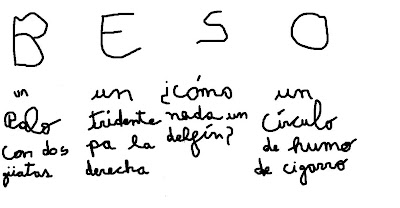 B E S O
un
Palo
con dos
güatas
un
tridente
pa la
derecha
¿cómo
nada un
delfín?
un
círculo
de humo
de cigarro